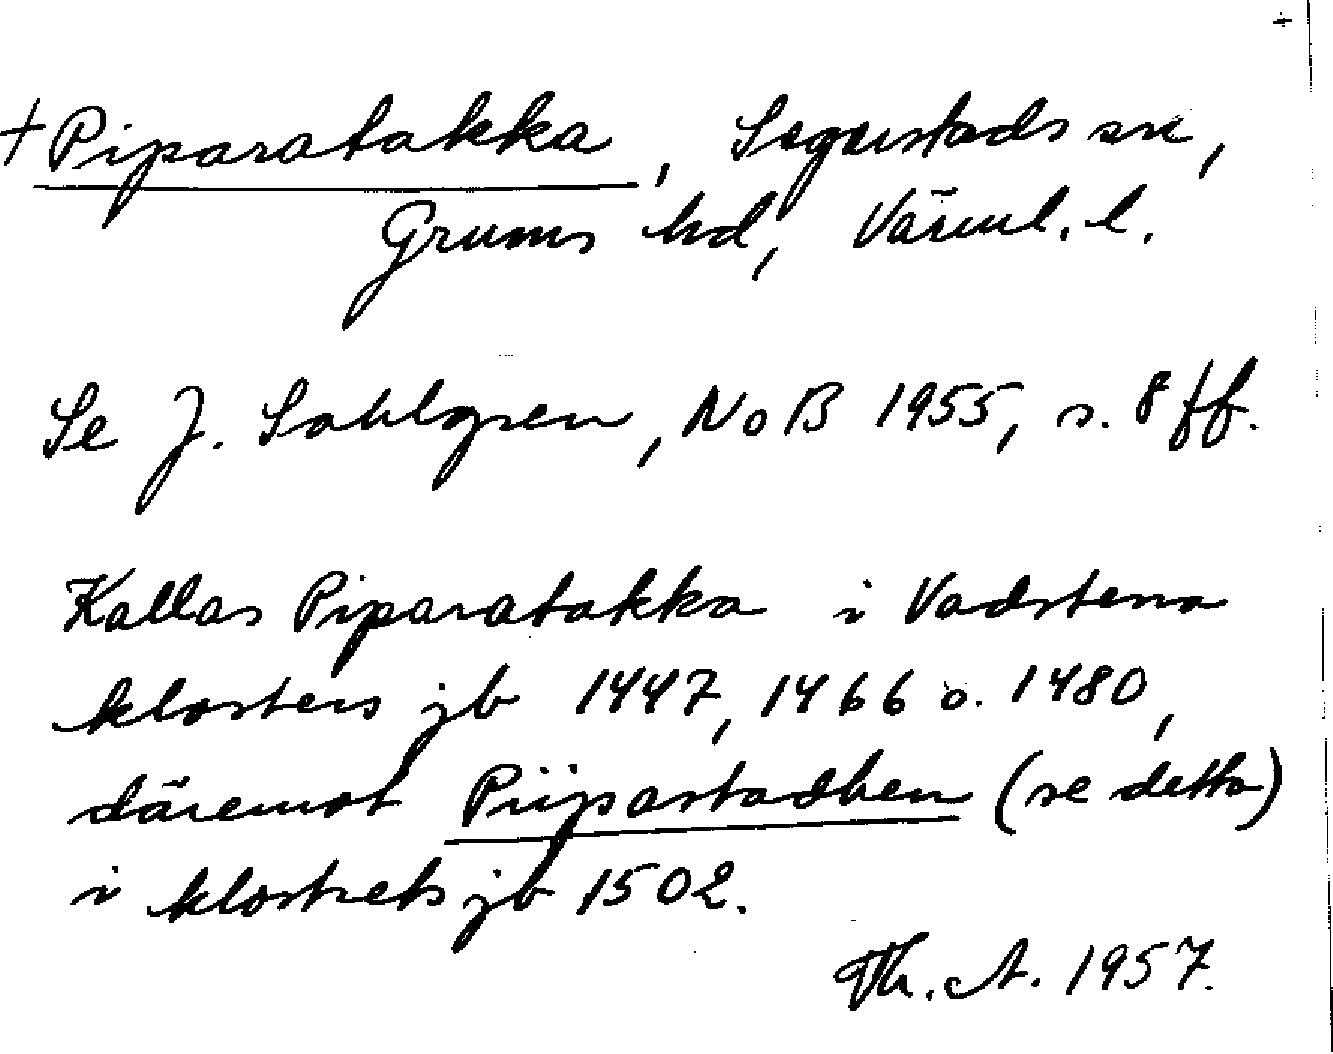 +
† Piparatakka, Segerstads sn,
Grums hd, Värml. l.
Se J. Sahlgren, NoB 1955, s. 8 ff.
Kallas Piparatakka i Vadstena
klosters jb 1447, 1466 o. 1480,
däremot Piipastadhen (se detta)
i klostrets jb 1502.
Th. A. 1957.